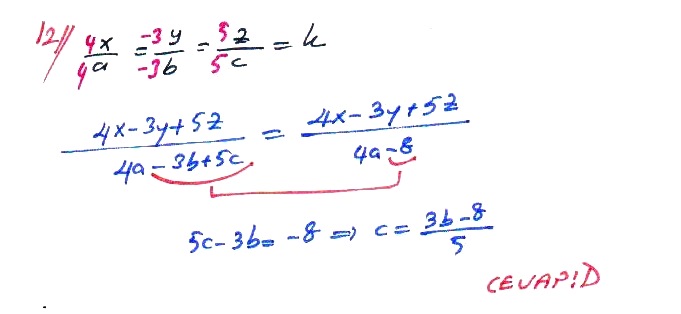 12// 4x/4a = -3y/-3b = 5z/5c = k
4x-3y+5z/4a-3b+5c = 4x-3y+5z/4a-8
5c-3b= -8 ⇒ c= 3b-8/5
CEVAP:D